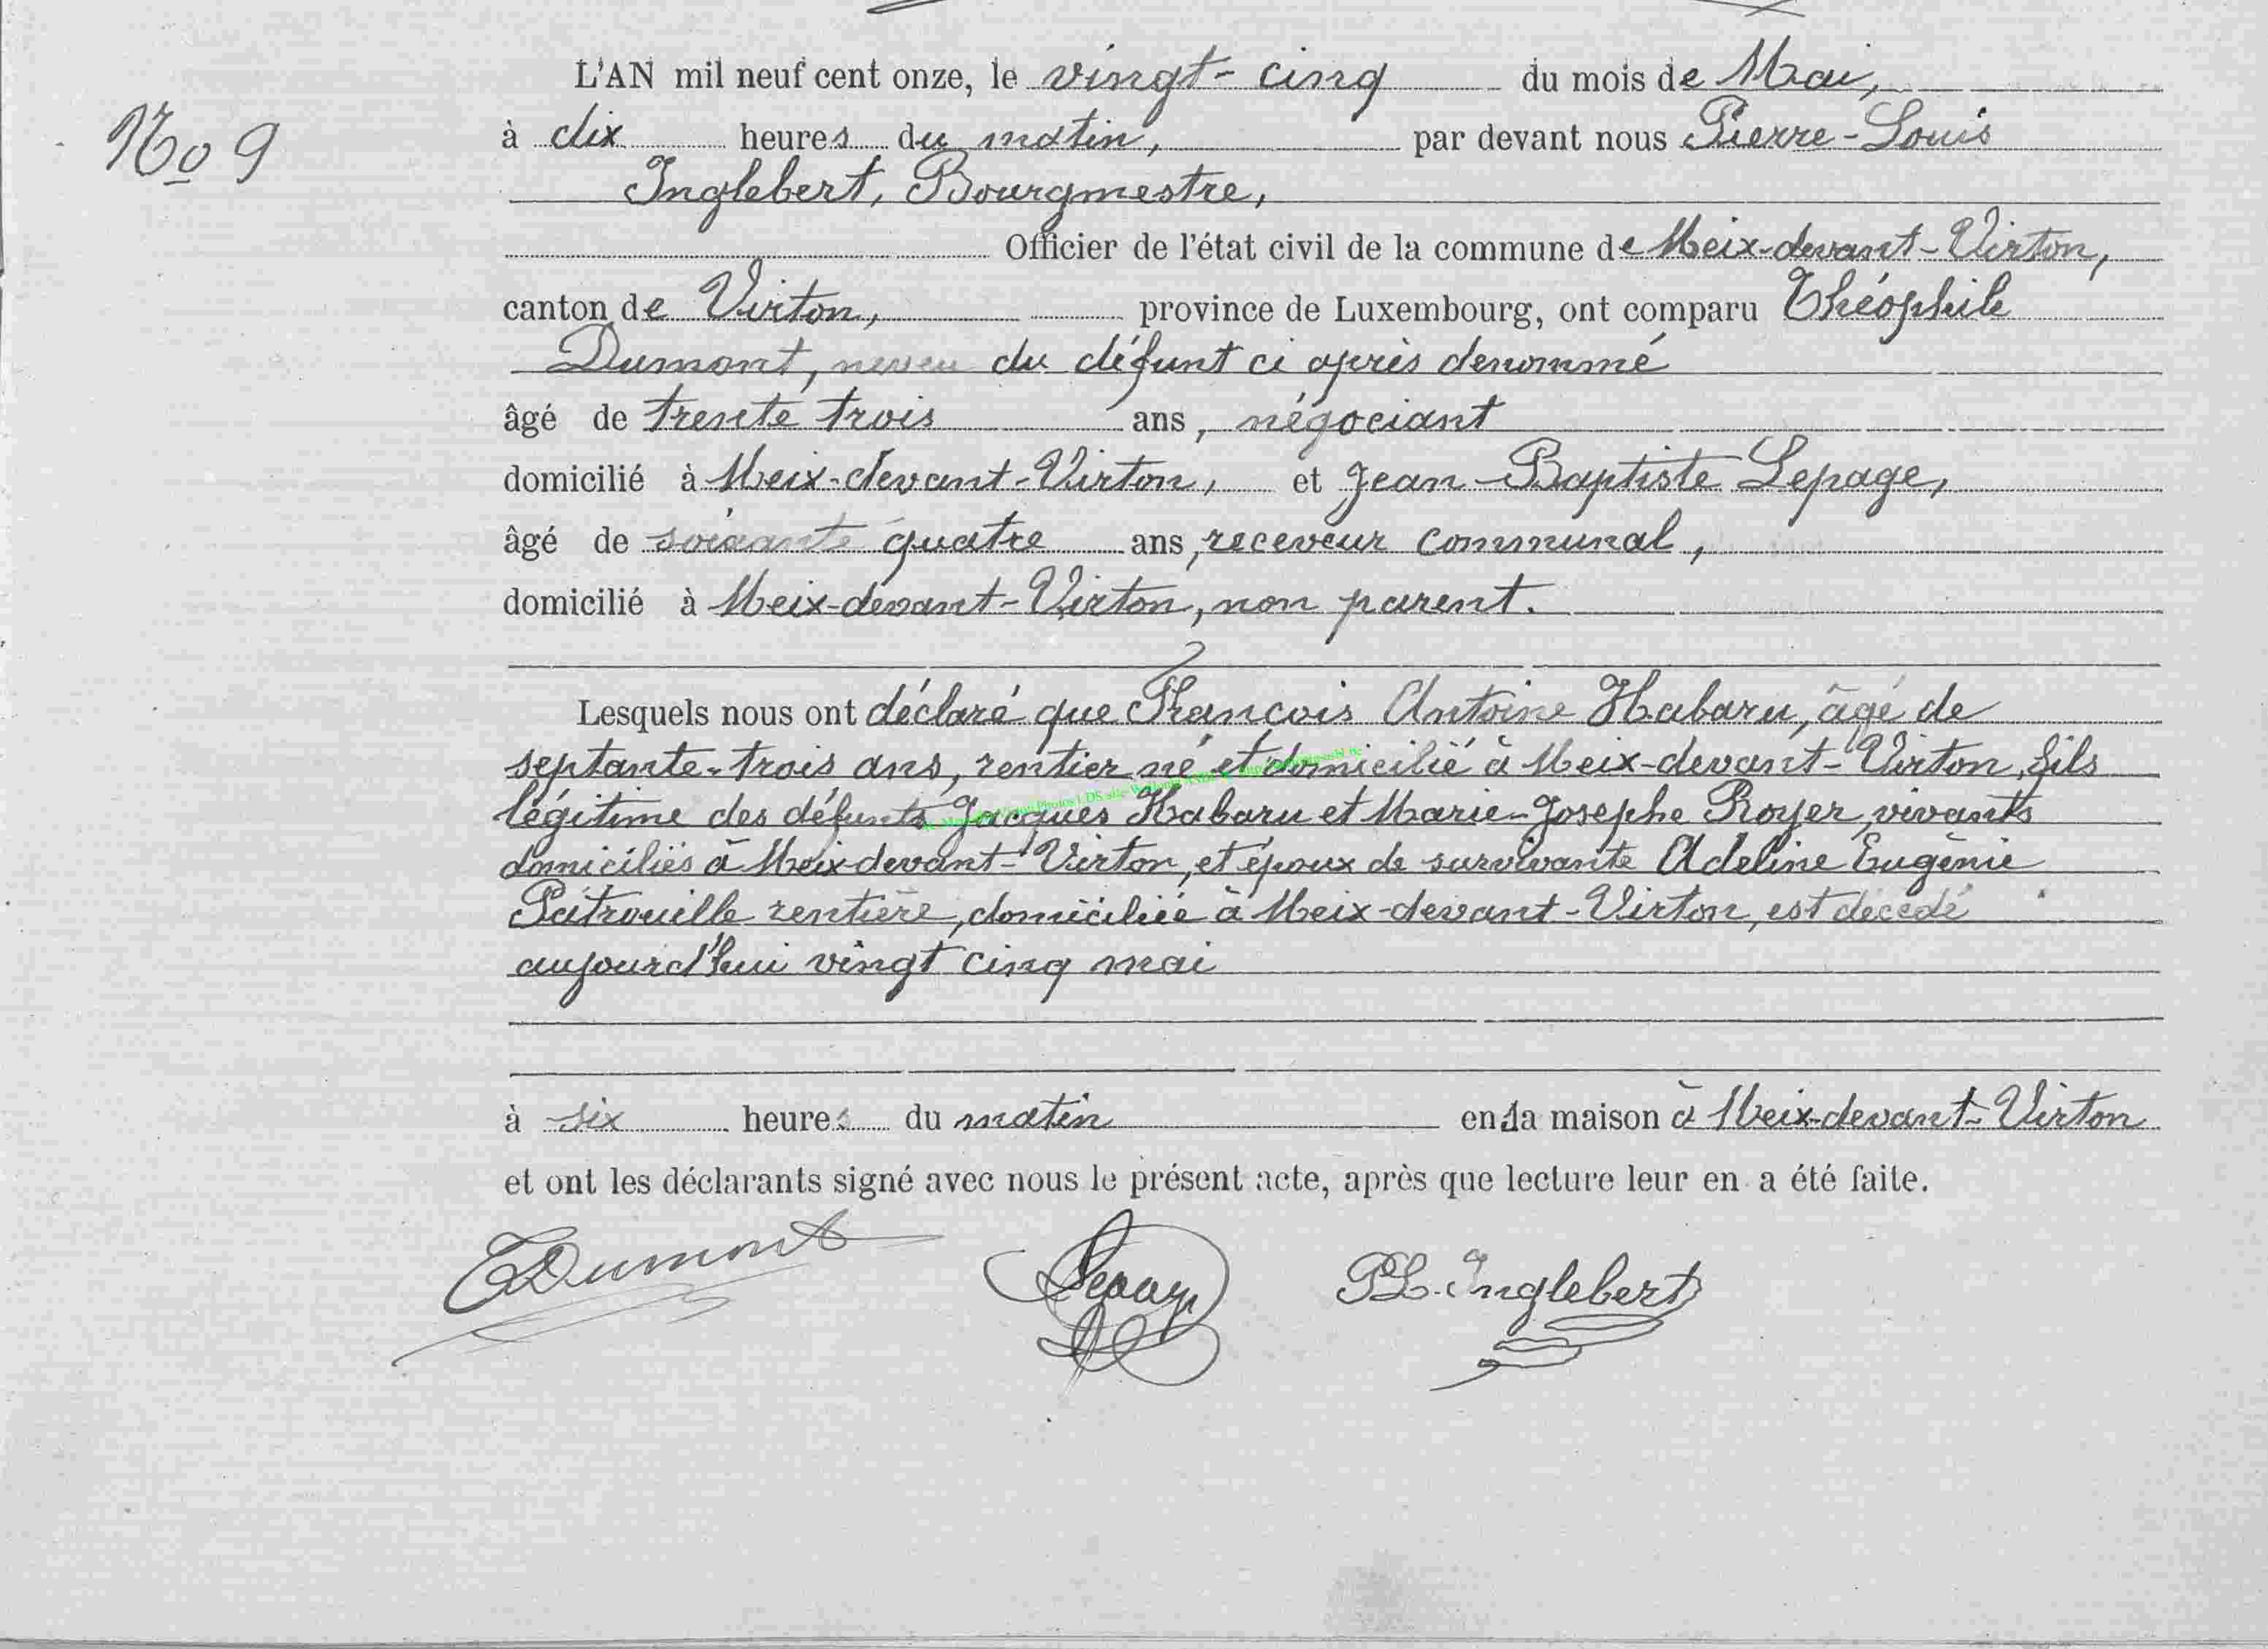 L'AN mil neuf cent onze, le vingt-cinq du mois de Mai,
No 9
à dix heures du matin, par devant nous Pierre-Louis
Inglebert, Bourgmestre,
Officier de l'état civil de la commune de Meix-devant-Virton,
canton de Virton, province de Luxembourg, ont comparu Théophile
Dumont, neveu du défunt ci après denommé
âgé de trente trois ans, négociant
domicilié à Meix-devant-Virton, et Jean-Baptiste Lepage,
âgé de soixante quatre ans, receveur communal,
domicilié à Meix-devant-Virton, non parent.
Lesquels nous ont déclaré que François Antoine Habaru, âgé de
septante-trois ans, rentier né et domicilié à Meix-devant-Virton, fils
légitime des défunts Jacques Habaru et Marie-Josephe Royer, vivants
domiciliés à Meix-devant-Virton, et époux de survivante Adeline Eugènie
Patrouille rentière, domiciliée à Meix-devant-Virton, est décédé
aujourd'hui vingt cinq mai
à six heures du matin en la maison à Meix-devant-Virton
et ont les déclarants signé avec nous le présent acte, après que lecture leur en a été faite.
TDumont Lepage PL. Inglebert